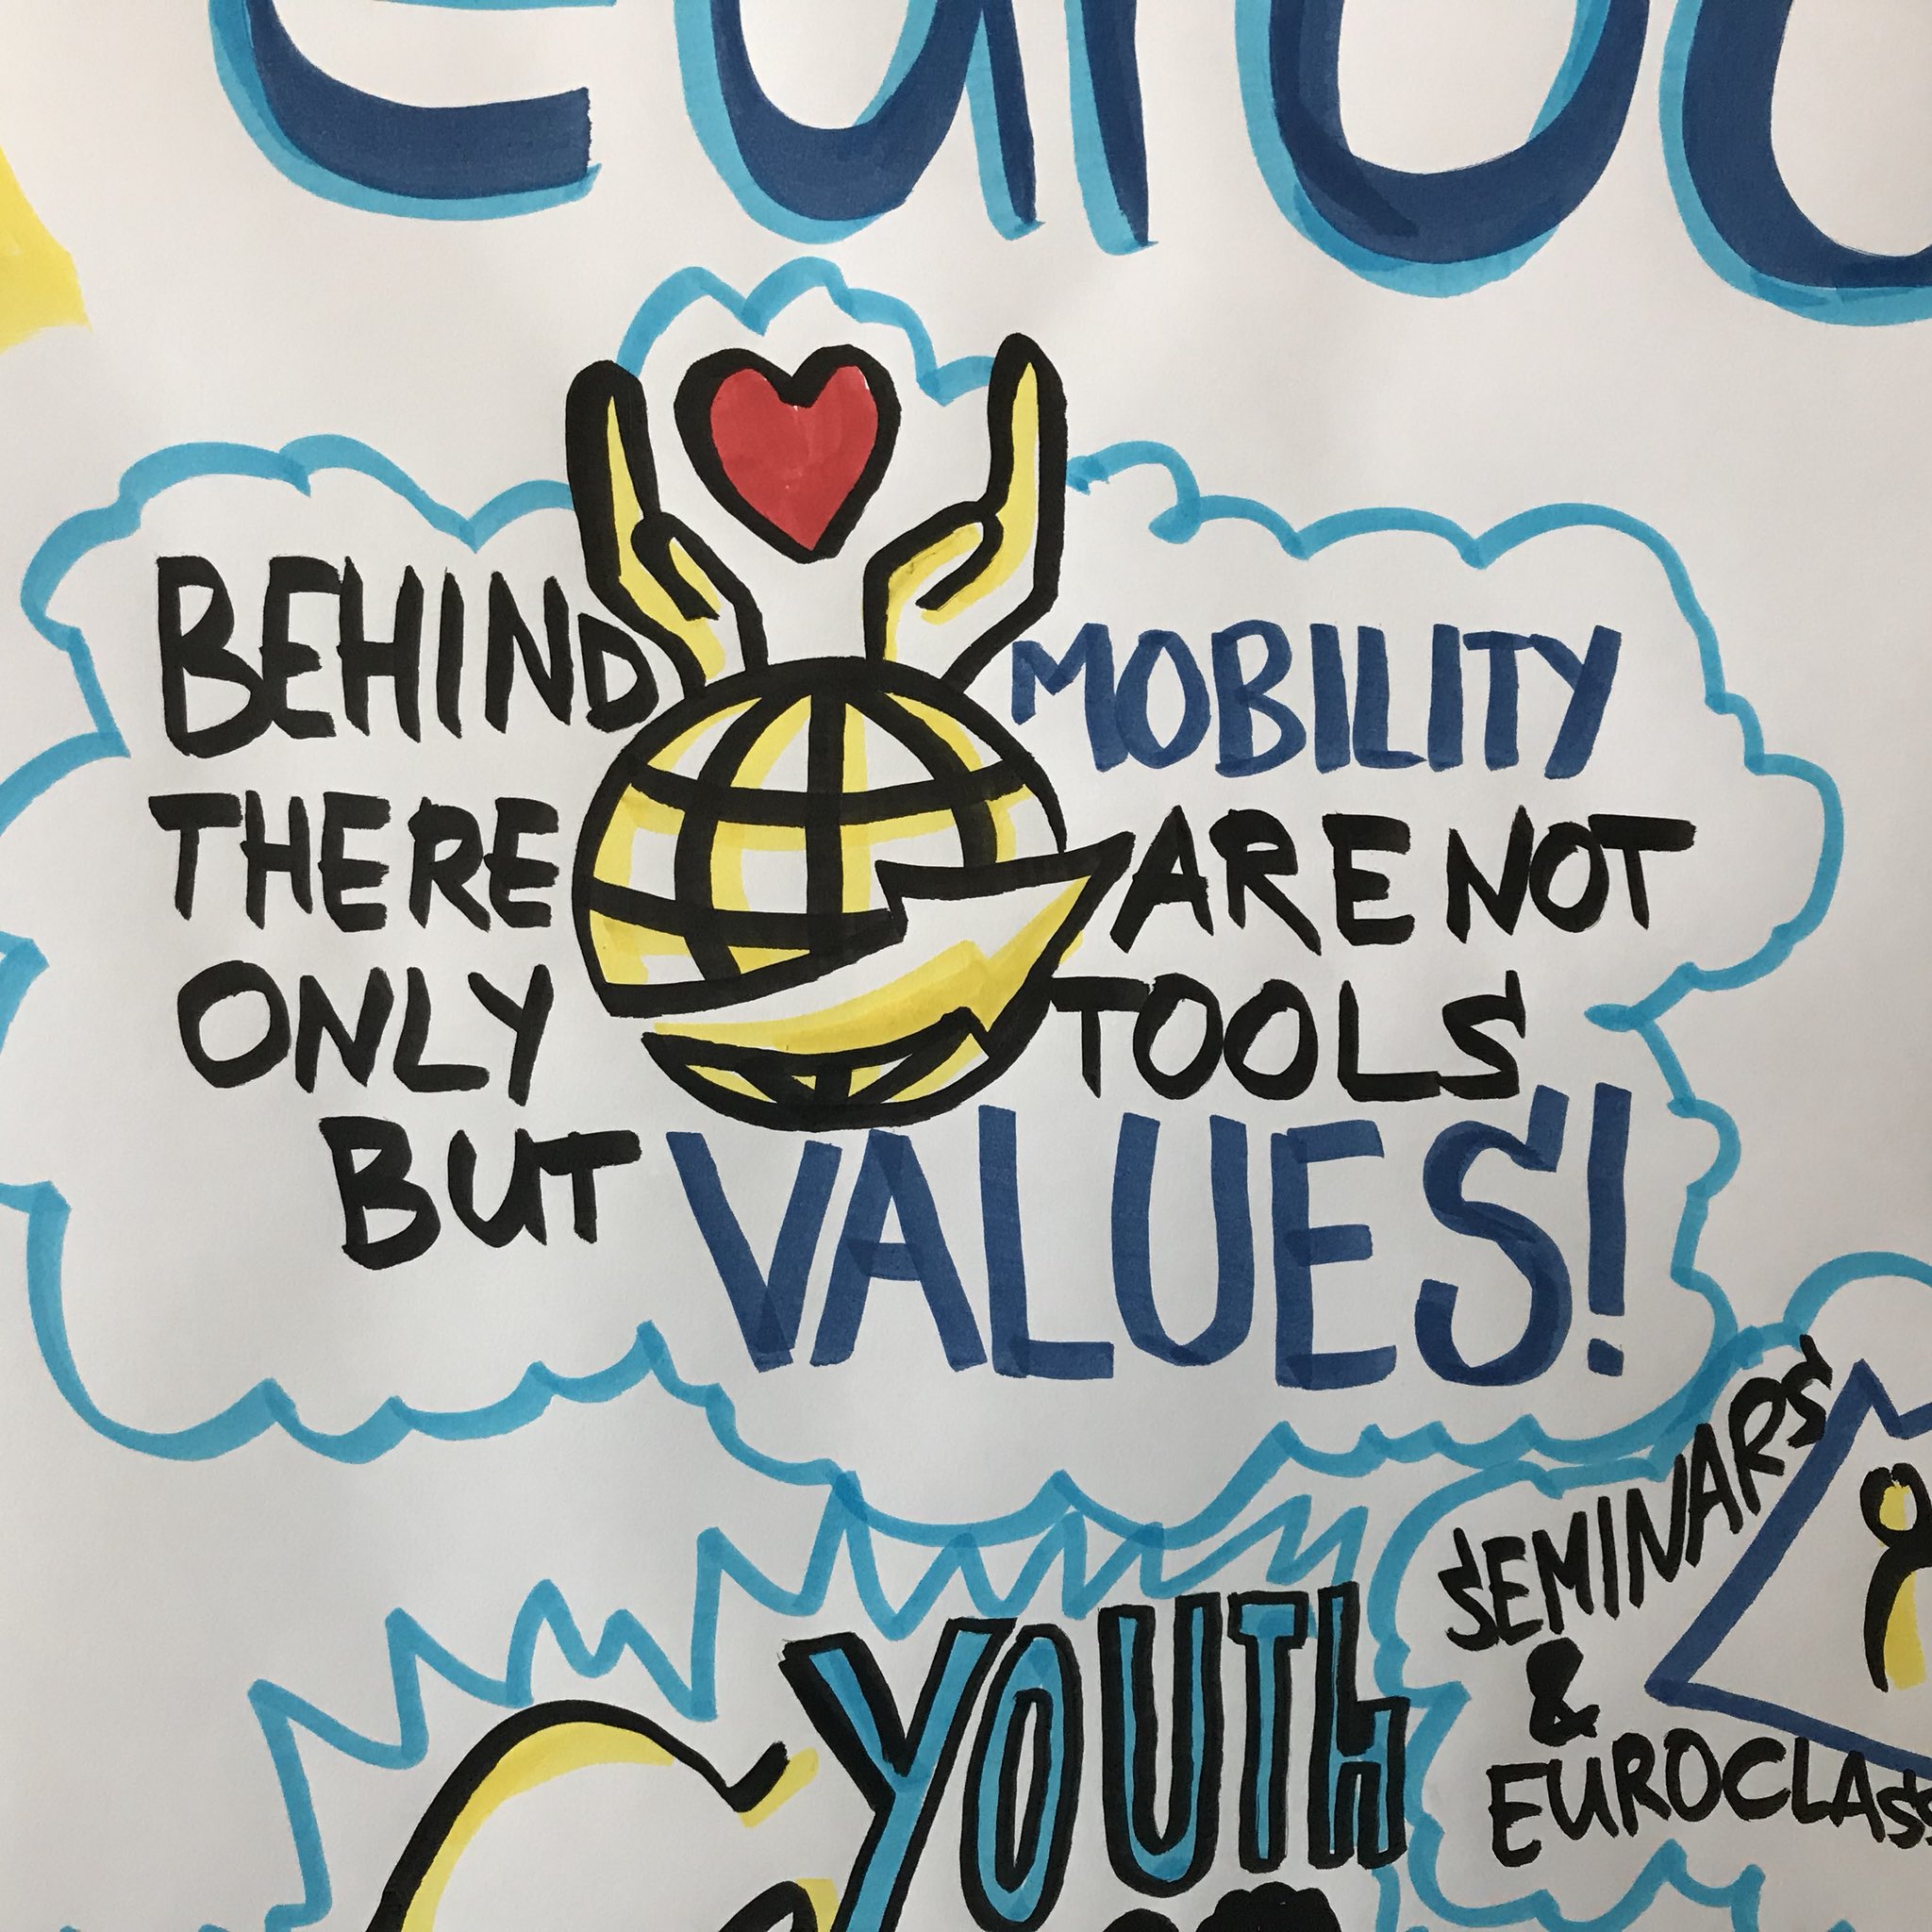 BEHIND MOBILITY
THERE ARE NOT
ONLY TOOLS
BUT VALUES!
YOUTH
SEMINARS
&
EUROCLASS